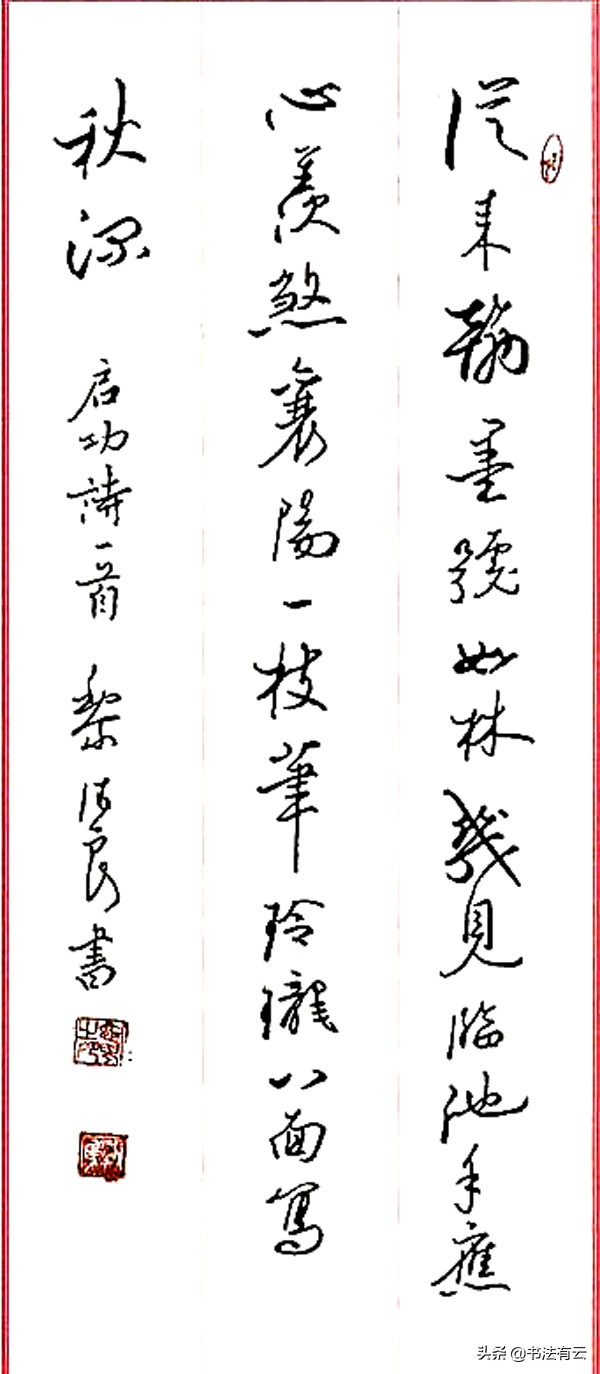 從来翰墨號如林幾見臨池手應
心羨煞襄陽一枝筆玲瓏八面寫
秋深 启功詩一首 黎良書
头条 @书法有云